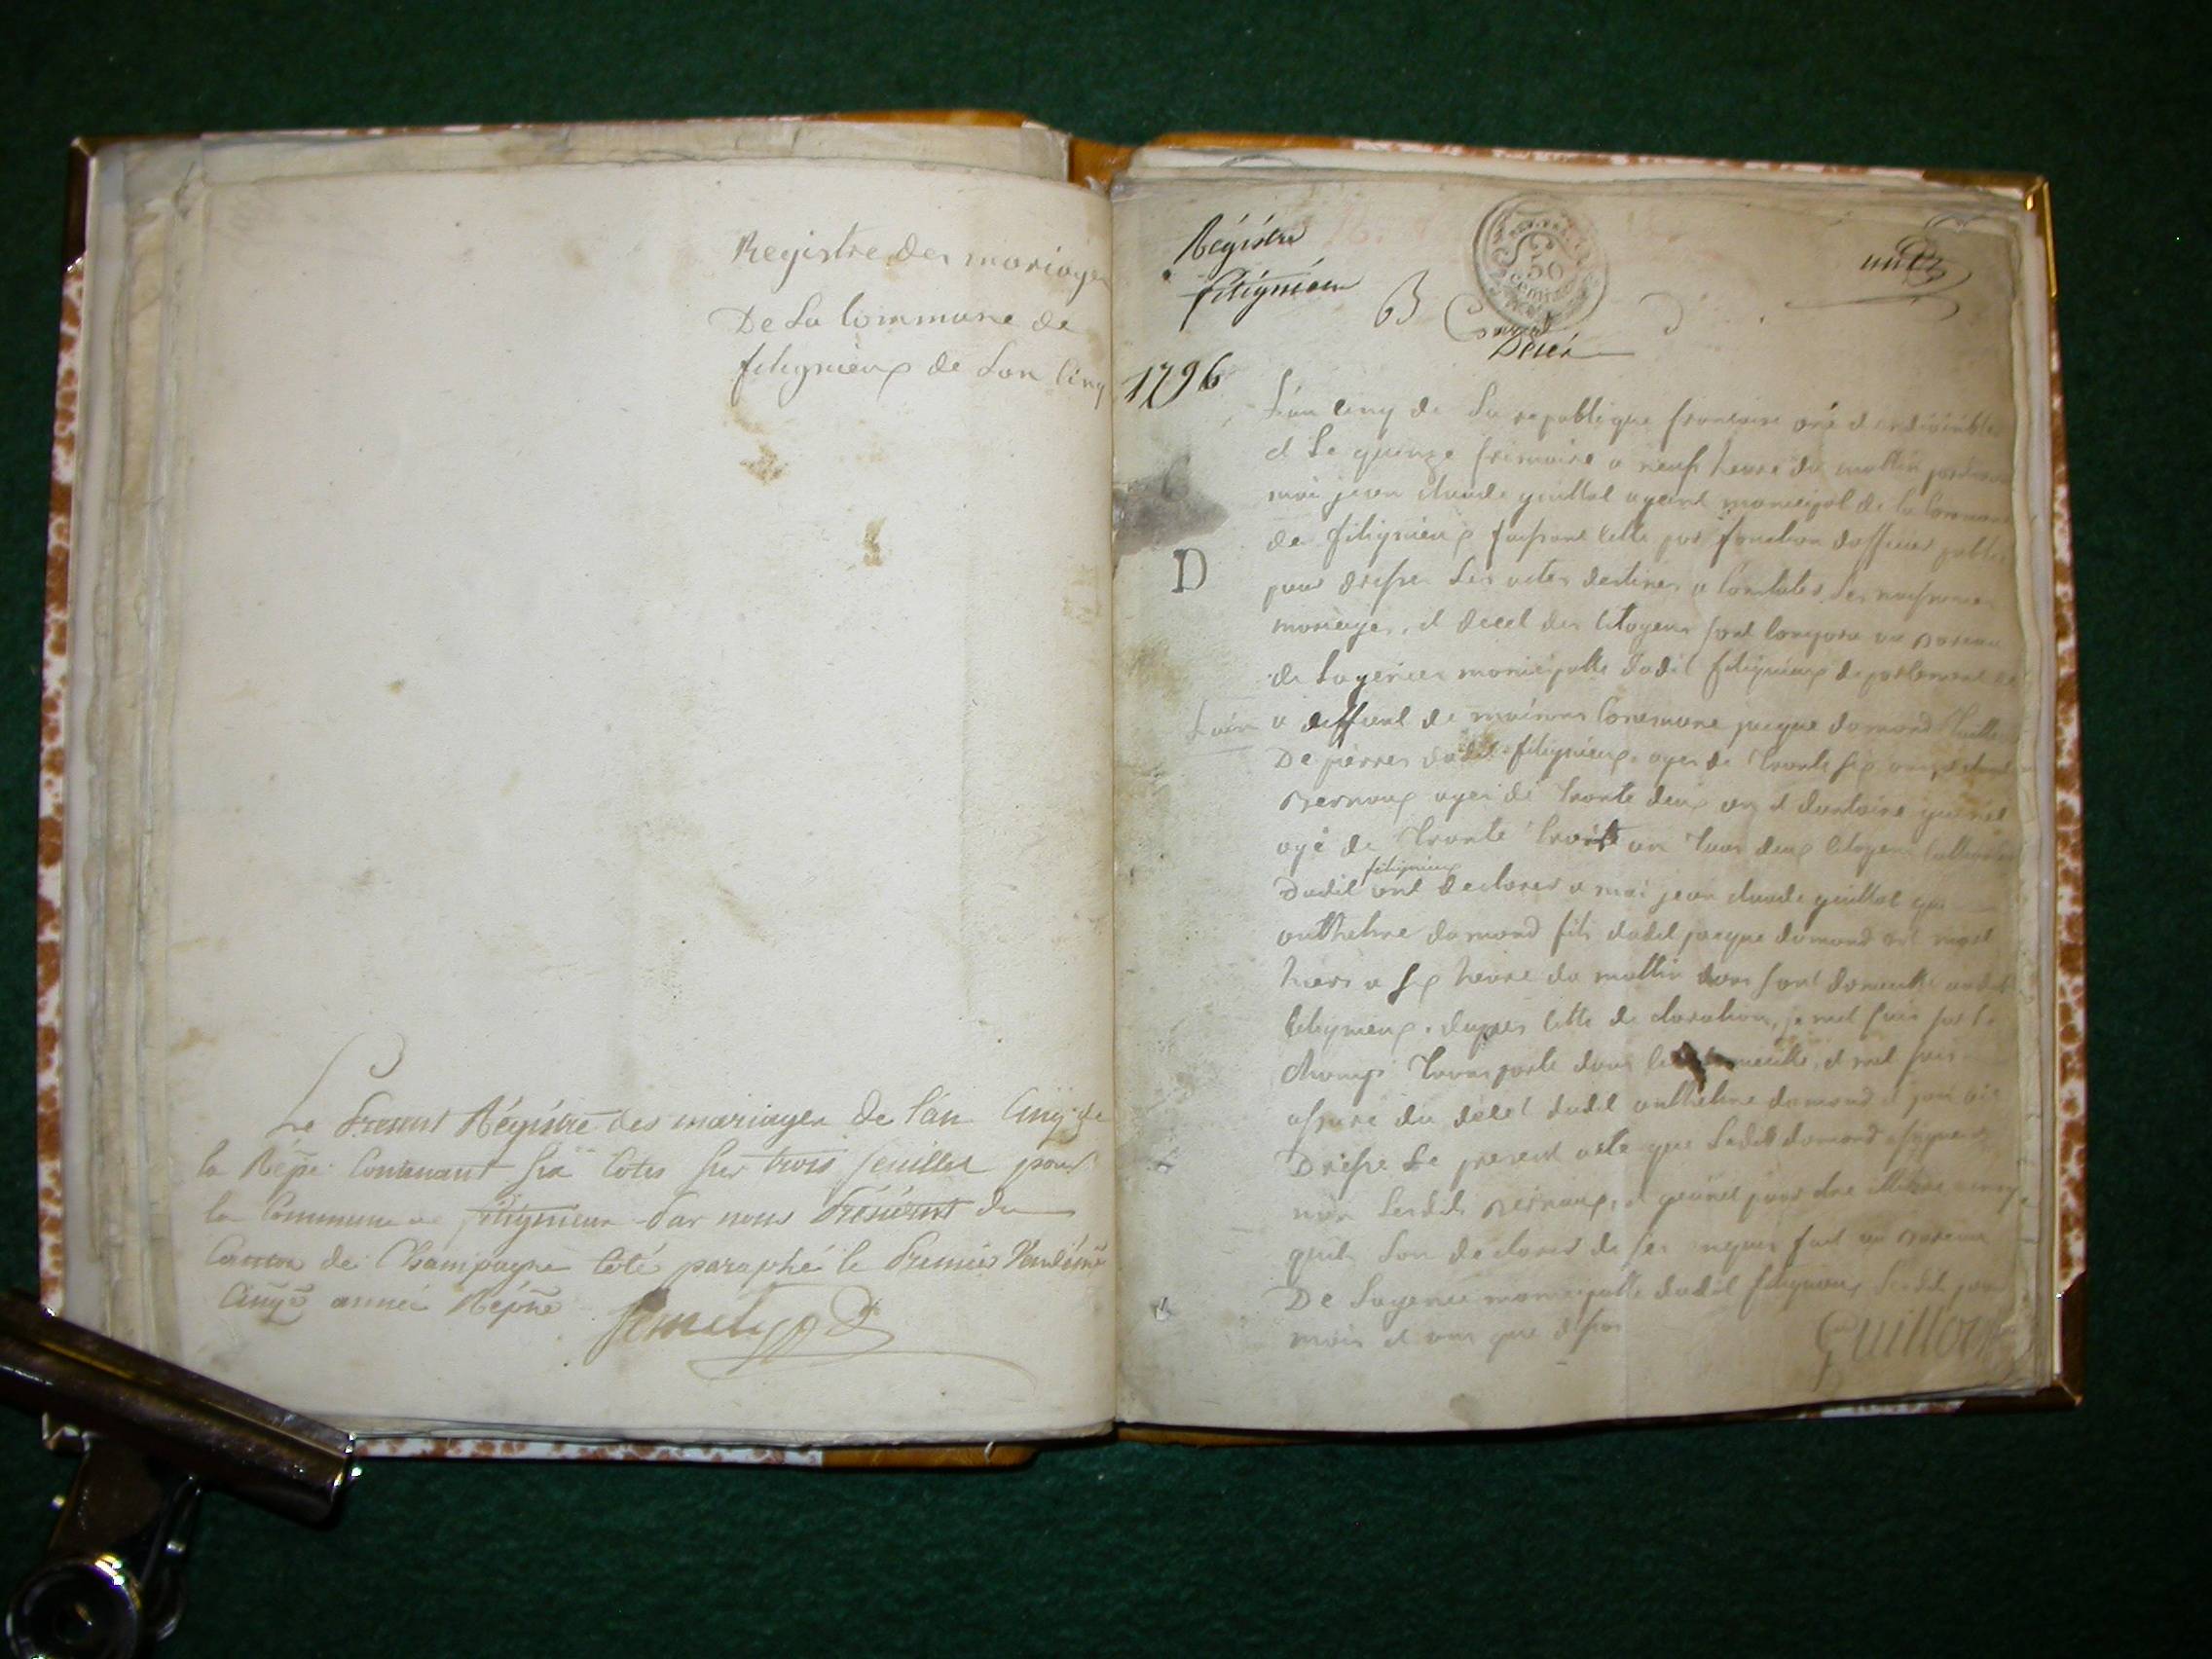 Registre des mariages
De La Commune de
fitignieux de Lan Cinq
Le Présent Régistre des mariages de l'an Cinq de
la Répe Contenant Six Cotes sur trois feuillet pour
la Commune de fitignieux Par nous Président du
Canton de Champagne Coté paraphé le Premier Vendémre
Cinqe année Répne
Régistre
fitignieux
50
centimes
un
Décés
1796
L'an cinq de La republique francaise une et indivisible
et Le quinze frimaire a neuf heure du mattin pardevant
moi jean claude guillot agent municipal de la Commune
de fitignieux faisant cette pos fonction dofficier public
pour dresser Les actes destines a Constater Les naissances
mariages, et decet des Citoyens sont Comparu au Bureau
de Lagence municipalle dudit fitignieux departement de
Lain a deffaut de maison Commune jacque domond
De pierres dudit fitignieux ages de trante six ans
Bernoux ages de trante deux an et dantoine
D
agé de trante an tous deux Citoyens Cultivateurs
fitignieux
Dudit ont declares a moi jean claude guillot que
anthelme domond fils dudit jacque domond est mort
hiers a six heure du mattin dans sont domicille audit
fitignieux. dapres cette declaration, je met suis sur le
champ transporte dans domicille, et met suis
assure du decet dudit anthelme domond et jen ait
Dresse Le present acte que Ledit domond a signe et
non Lesdits Bernoux, et pour etre illitere
quils Lon declares de ses requis fait au Bureau
De Lagence municipalle dudit fitignieux Lesdit jour
mois et an que dessus
Guillot